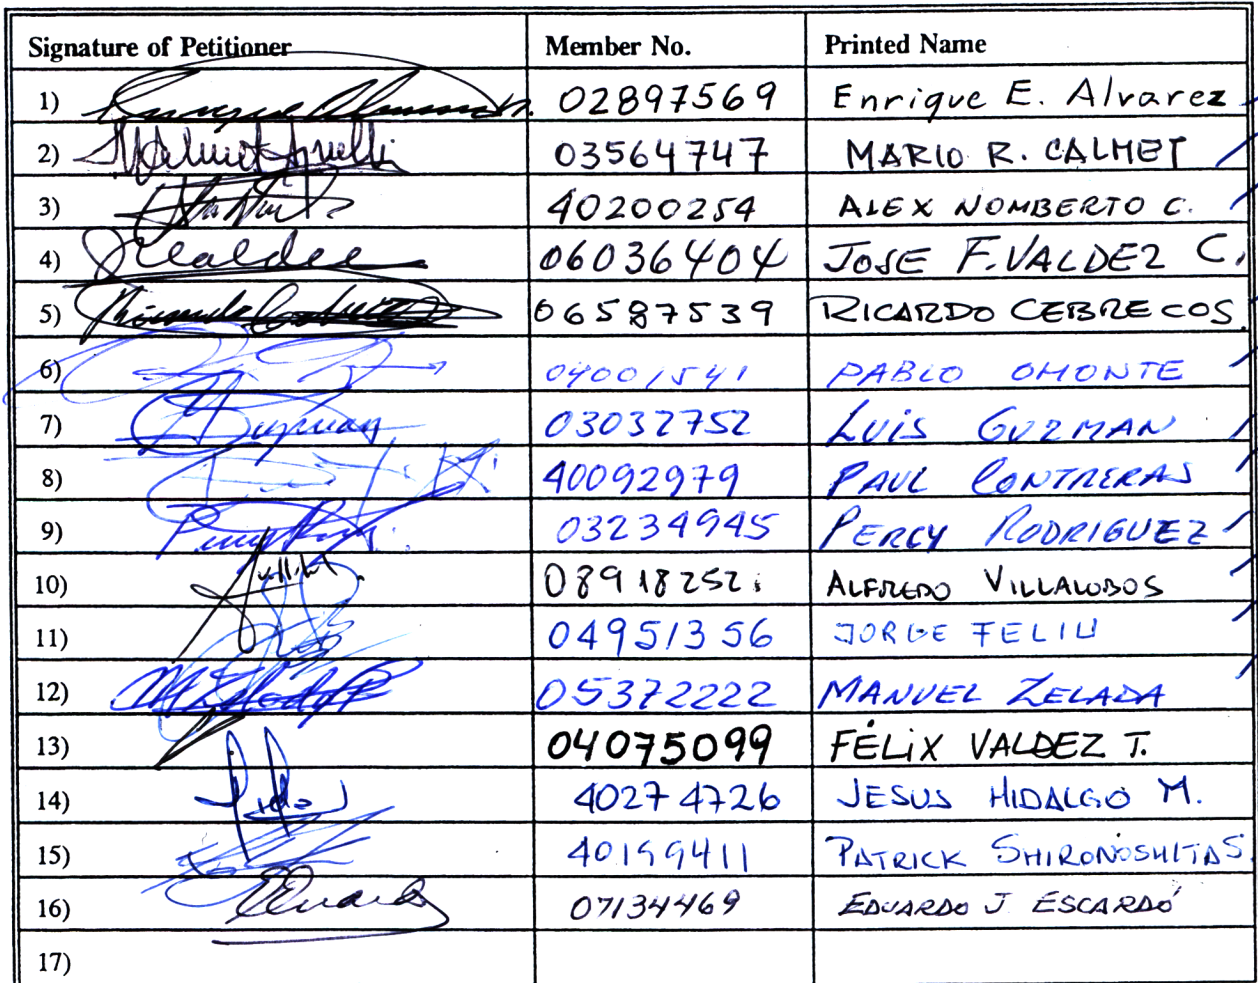 Signature of Petitioner Member No. Printed Name
1) 02897569 Enrique E. Alvarez
2) 03564747 MARIO R. CALMET
3) 40200254 ALEX NOMBERTO C.
4) 06036404 JOSE F. VALDEZ C.
5) 06587539 RICARDO CEBRECOS
6) 04001541 PABLO OMONTE
7) 03032752 LUIS GUZMAN
8) 40092979 PAUL CONTRERAS
9) 03234945 PERCY RODRIGUEZ
10) 08918252. ALFREDO VILLALOBOS
11) 04951356 JORGE FELIU
12) 05372222 MANUEL ZELADA
13) 04075099 FÉLIX VALDEZ T.
14) 40274726 JESUS HIDALGO M.
15) 40199411 PATRICK SHIRONOSHITA S.
16) 07134469 EDUARDO J ESCARDÓ
17)